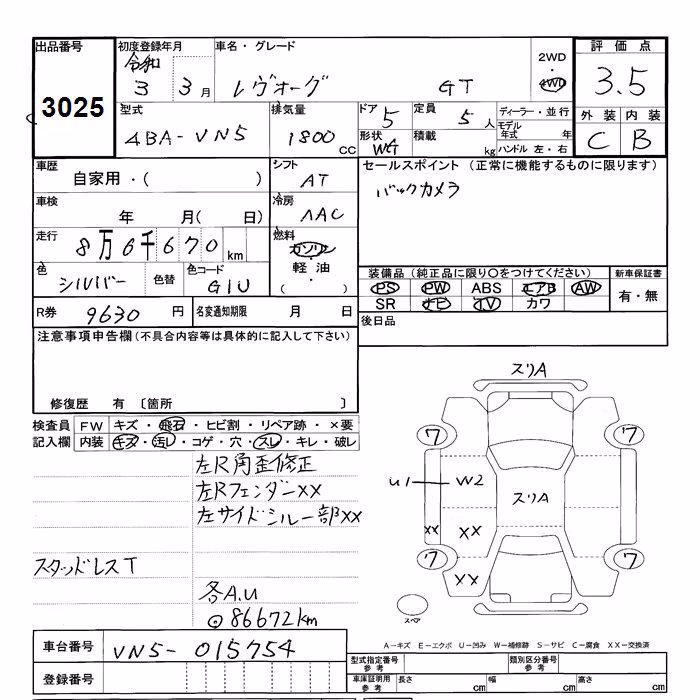 出品番号 3025
初度登録年月 令和 3 3月
車名・グレード レヴォーグ GT
2WD 4WD
評価点 3.5
外装 内装
C B
型式 4BA-VN5
排気量 1800 CC
ドア 5 定員 5人
形状 WG 積載 kg
ディーラー・並行
モデル年式 年
ハンドル 左・右
車歴 自家用・( )
シフト AT
セールスポイント (正常に機能するものに限ります)
バックカメラ
車検 年 月( 日)
冷房 AAC
走行 8万6千670km
燃料 ガソリン・軽油・( )
色 シルバー 色替 色コード G1U
装備品 (純正品に限り○をつけてください) 新車保証書
PS PW ABS エアB AW
SR ナビ TV カワ
有・無
R券 9630円 名変通知期限 月 日
後日品
注意事項申告欄(不具合内容等は具体的に記入して下さい)
修復歴 有 〔箇所 〕
検査員記入欄
FW キズ・飛石・ヒビ割・リペア跡・×要
内装 キズ・汚レ・コゲ・穴・スレ・キレ・破レ
左R角歪修正
左RフェンダーXX
左サイドシルー部XX
スタッドレスT
各A.U
86672km
スリA
ワ ワ
U1 W2 スリA
XX XX
ワ ワ
XX
スペア
A−キズ E−エクボ U−凹み W−補修跡 S−サビ C−腐食 XX−交換済
車台番号 VN5-015754
登録番号
型式指定番号 参考 類別区分番号 参考
車庫証明用 参考 長さ cm 幅 cm 高さ cm